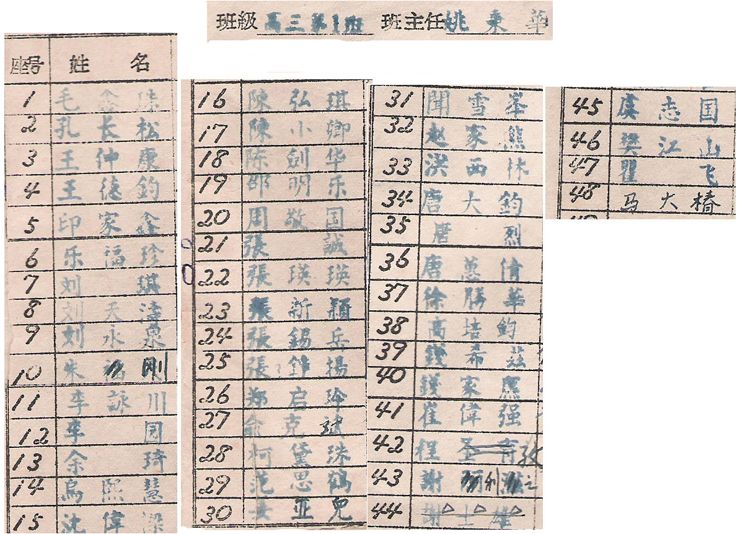 班級 高三第1班 班主任 姚秉華
座号 姓名
1 毛鑫
2 孔长松
3 王仲康
4 王德鈞
5 印家鑫
6 乐福珍
7 刘琪
8 刘天濤
9 刘永泉
10 朱 刚
11 李詠川
12 李固
13 余琦
14 烏熙慧
15 沈偉梁
16 陳弘琪
17 陳小卿
18 陈剑华
19 邵明乐
20 周敬国
21 張誠
22 張瑛瑛
23 張新穎
24 張錫兵
25 張鍾揚
26 郑启玲
27 俞克斌
28 柯黛珠
29 范思鶴
30 亚兒
31 聞雪峯
32 赵家熊
33 洪西林
34 唐大鈞
35 屠烈
36 唐蕙倩
37 徐勝華
38 高培鈞
39 錢希茲
40 家熙
41 崔偉强
42 程
43 謝
44 謝士雄
45 虞志国
46 樊江山
47 瞿飞
48 马大椿